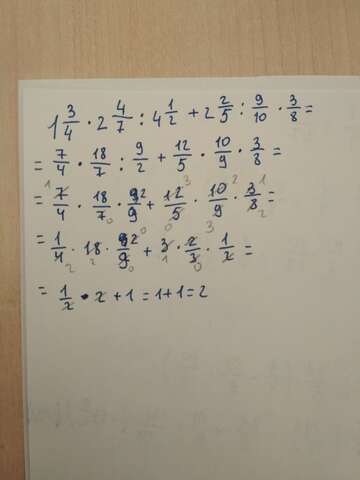 1 3/4 · 2 4/7 : 4 1/2 + 2 2/5 : 9/10 · 3/8 =
= 7/4 · 18/7 : 9/2 + 12/5 · 10/9 · 3/8 =
= 7/4 · 18/7 · 2/9 + 12/5 · 10/9 · 3/8 =
= 1/4 · 18 · 2/9 + 3 · 2/3 · 1/2 =
= 1/2 · 2 + 1 = 1 + 1 = 2